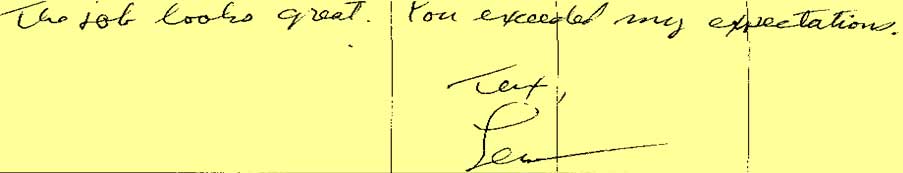 The job looks great. You exceeded my expectations.